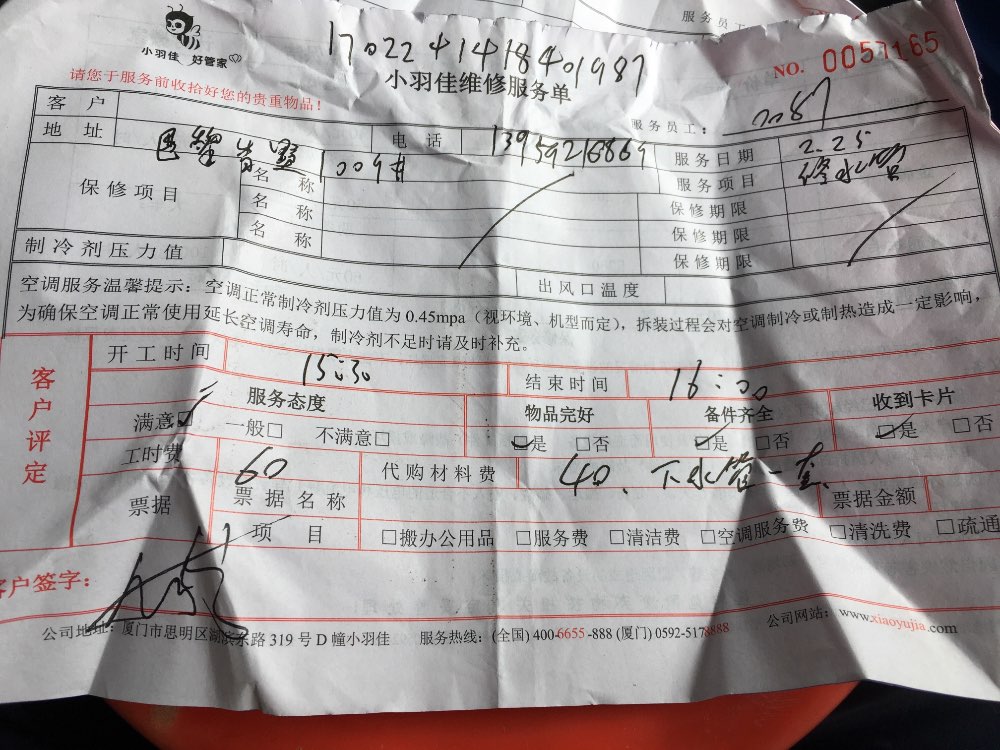 服务员工
小羽佳 好管家
1702241418401987
NO. 0057165
小羽佳维修服务单
请您于服务前收拾好您的贵重物品！
服务员工： 2087
客户
地址 1009# 电话 13959216869 服务日期 2.25
保修项目 名称 服务项目 修水管
名称 保修期限
名称 保修期限
制冷剂压力值 出风口温度 保修期限
空调服务温馨提示：空调正常制冷剂压力值为 0.45mpa（视环境、机型而定），拆装过程会对空调制冷或制热造成一定影响，
为确保空调正常使用延长空调寿命，制冷剂不足时请及时补充。
客户评定
开工时间 15:30 结束时间 16:00
服务态度 物品完好 备件齐全 收到卡片
满意☑ 一般□ 不满意□ ☑是 □否 ☑是 □否 ☑是 □否
工时费 60 代购材料费 40、下水管一套
票据 票据名称 票据金额
项目 □搬办公用品 □服务费 □清洁费 □空调服务费 □清洗费 □疏通
客户签字：
公司地址：厦门市思明区湖滨东路 319 号 D 幢小羽佳 服务热线：(全国) 400-6655-888 (厦门) 0592-5178888 公司网站：www.xiaoyujia.com